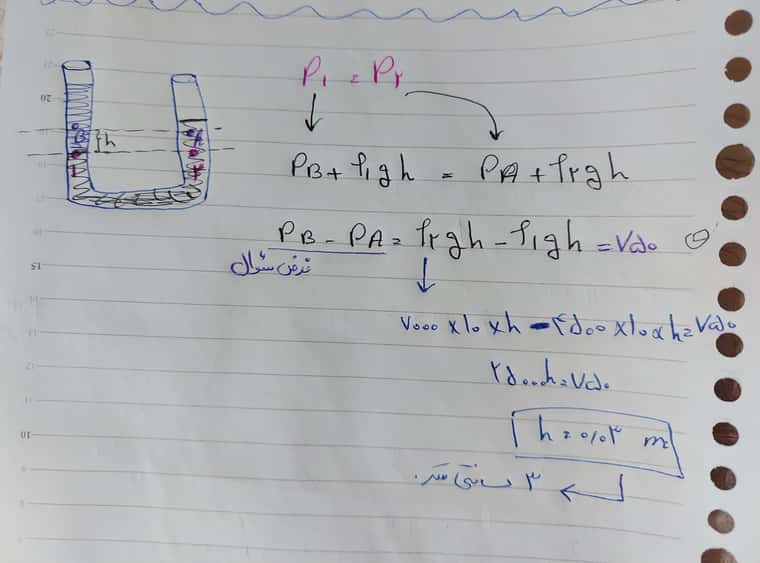 P₁ = P₂
P_B + ρ₁gh = P_A + ρ₂gh
P_B - P_A = ρ₂gh - ρ₁gh = ۷۵۰
فرض سوال
۷۰۰۰ × ۱۰ × h - ۴۵۰۰ × ۱۰ × h = ۷۵۰
۲۵۰۰۰h = ۷۵۰
h = ۰/۰۳ m
۳ سانتی متر.
B
h
A
۱
۲
20
15
10